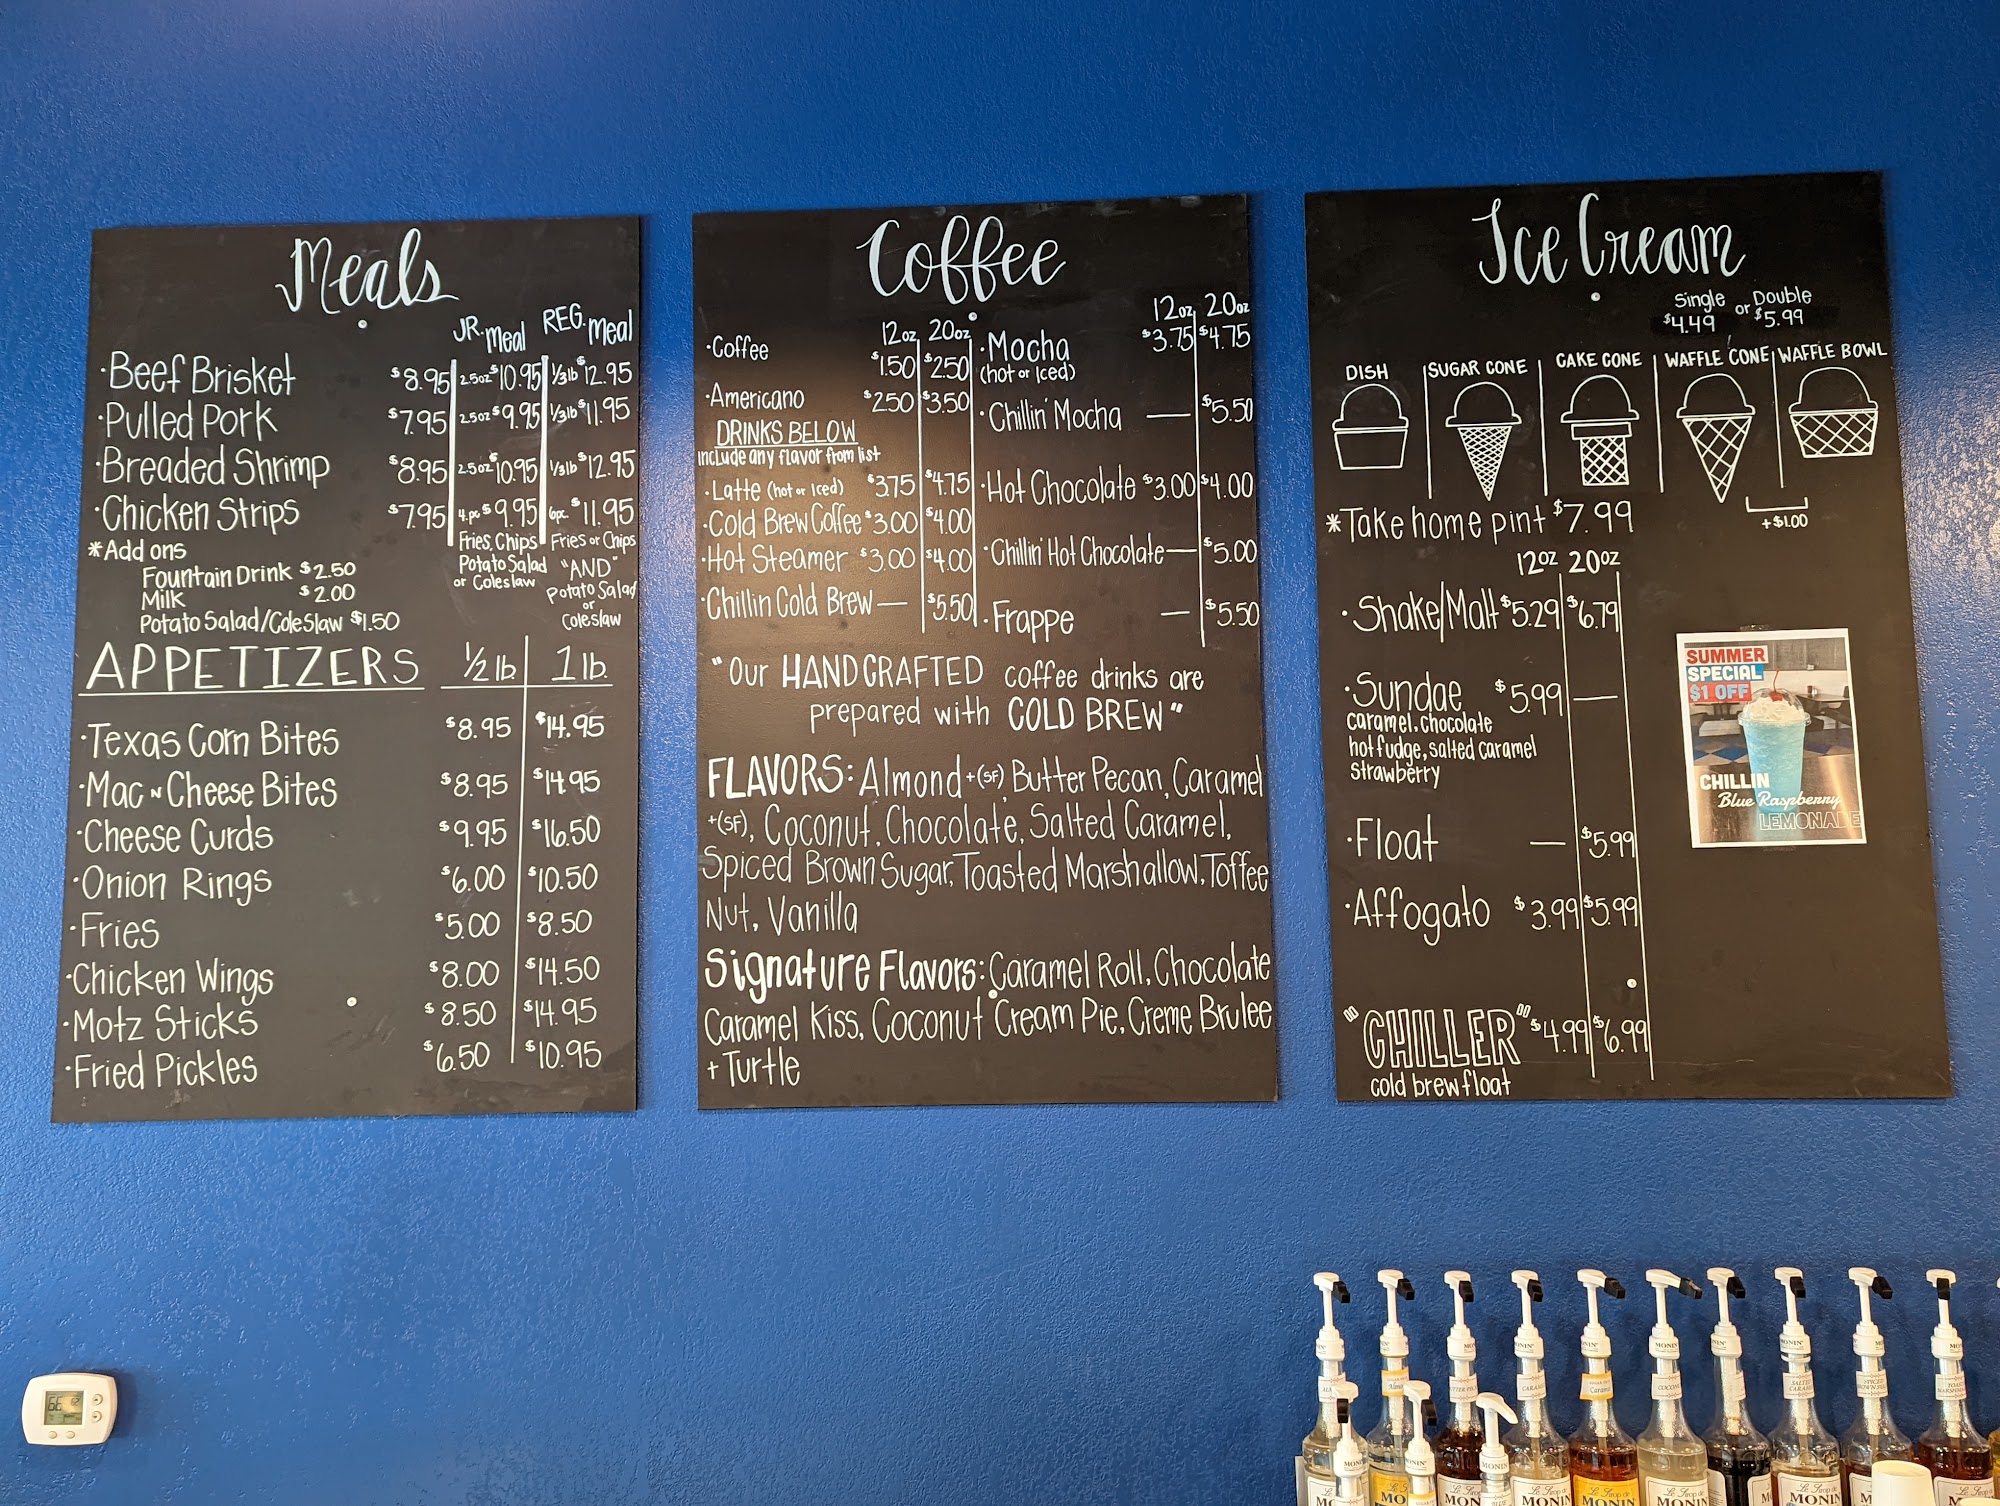 Meals
JR. Meal REG. Meal
·Beef Brisket $8.95 2.5oz $10.95 1/3lb $12.95
·Pulled Pork $7.95 2.5oz $9.95 1/3lb $11.95
·Breaded Shrimp $8.95 2.5oz $10.95 1/3lb $12.95
·Chicken Strips $7.95 4.pc $9.95 6pc. $11.95
*Add ons
Fountain Drink $2.50
Milk $2.00
Potato Salad/Coleslaw $1.50
Fries, Chips
Potato Salad
or Coleslaw
Fries or Chips
"AND"
Potato Salad
or
Coleslaw
APPETIZERS 1/2 lb 1 lb.
·Texas Corn Bites $8.95 $14.95
·Mac N Cheese Bites $8.95 $14.95
·Cheese Curds $9.95 $16.50
·Onion Rings $6.00 $10.50
·Fries $5.00 $8.50
·Chicken Wings $8.00 $14.50
·Motz Sticks $8.50 $14.95
·Fried Pickles $6.50 $10.95
Coffee
12oz 20oz
·Coffee $1.50 $2.50
·Americano $2.50 $3.50
DRINKS BELOW
include any flavor from list
·Latte (hot or Iced) $3.75 $4.75
·Cold Brew Coffee $3.00 $4.00
·Hot Steamer $3.00 $4.00
·Chillin Cold Brew — $5.50
12oz 20oz
·Mocha $3.75 $4.75
(hot or Iced)
·Chillin' Mocha — $5.50
·Hot Chocolate $3.00 $4.00
·Chillin' Hot Chocolate — $5.00
·Frappe — $5.50
"Our HANDCRAFTED coffee drinks are
prepared with COLD BREW"
FLAVORS: Almond +(SF), Butter Pecan, Caramel
+(SF), Coconut, Chocolate, Salted Caramel,
Spiced Brown Sugar, Toasted Marshallow, Toffee
Nut, Vanilla
Signature Flavors: Caramel Roll, Chocolate
Caramel Kiss, Coconut Cream Pie, Creme Brulee
+ Turtle
Ice Cream
Single or Double
$4.49 $5.99
DISH SUGAR CONE CAKE CONE WAFFLE CONE WAFFLE BOWL
+$1.00
*Take home pint $7.99
12oz 20oz
·Shake/Malt $5.29 $6.79
·Sundae $5.99 —
caramel, chocolate
hot fudge, salted caramel
strawberry
·Float — $5.99
·Affogato $3.99 $5.99
"CHILLER" $4.99 $6.99
cold brew float
SUMMER
SPECIAL
$1 OFF
CHILLIN
Blue Raspberry
LEMONADE
66
MONIN